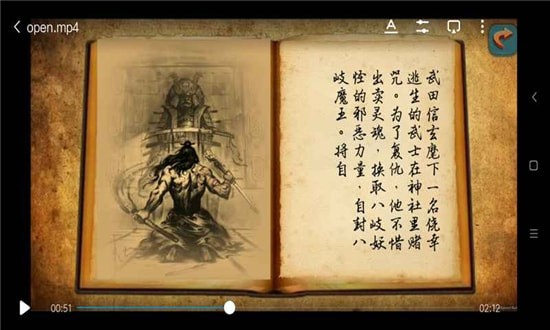 open.mp4
武田信玄麾下一名侥幸
逃生的武士在神社里赌
咒。为了复仇，他不惜
出卖灵魂，换取八岐妖
怪的邪恶力量，自封八
岐魔王。将自
00:51
02:12